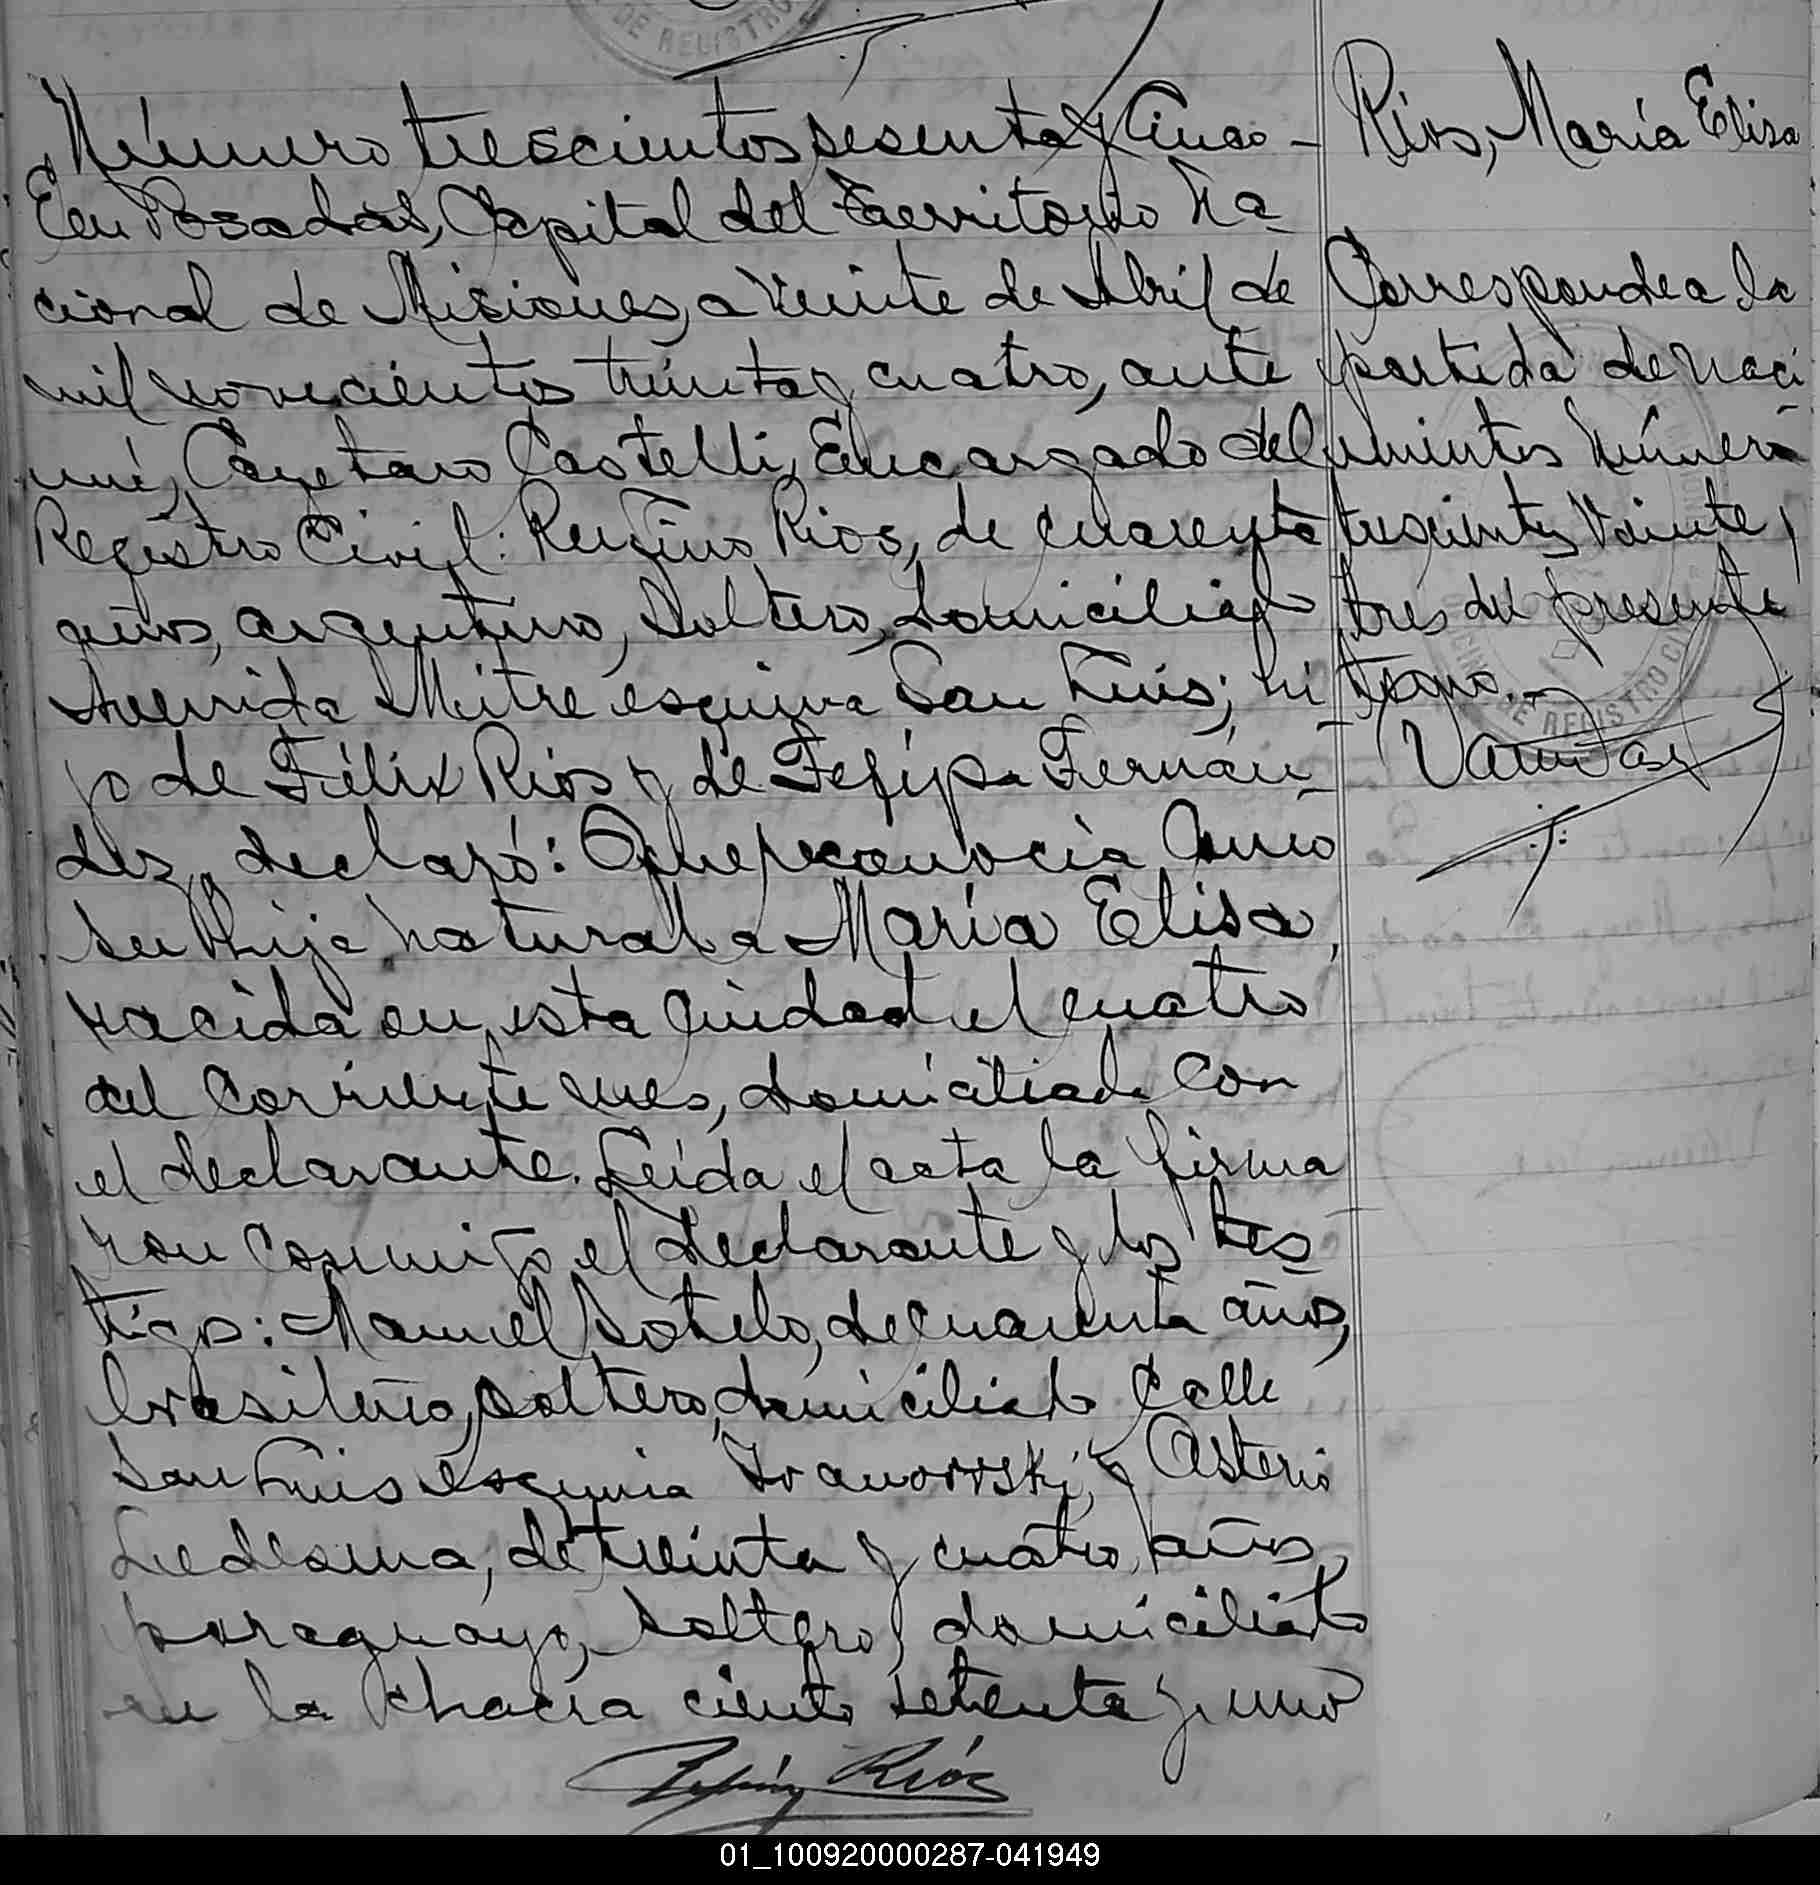 DE REGISTRO
Número trescientos sesenta y cinco –
En Posadas, Capital del Territorio Na-
cional de Misiones, a veinte de Abril de
mil novecientos treinta y cuatro, ante
mí, Cayetano Castelli, Encargado del
Registro Civil: Rufino Rios, de cuarenta
años, argentino, soltero, domiciliado
Avenida Mitre esquina San Luis; hi-
jo de Félix Rios y de Felipa Fernán-
dez, declaró: Que reconocía como
su hija natural a María Elisa,
nacida en esta ciudad el cuatro
del corriente mes, domiciliada con
el declarante. Leída el acta la firma
ron conmigo el declarante y los tes-
tigos: Manuel Sotelo, de cuarenta años,
brasileño, soltero, domiciliado Calle
San Luis esquina Ivanowski, y Asterio
Ledesma, de treinta y cuatro años,
paraguayo, soltero, domiciliado
en la chacra ciento setenta y uno
Rufino Rios
Rios, María Elisa
Corresponde a la
partida de naci-
mientos número
trescientos veinte y
tres del presente
tomo.–
DE REGISTRO CI
01_100920000287-041949